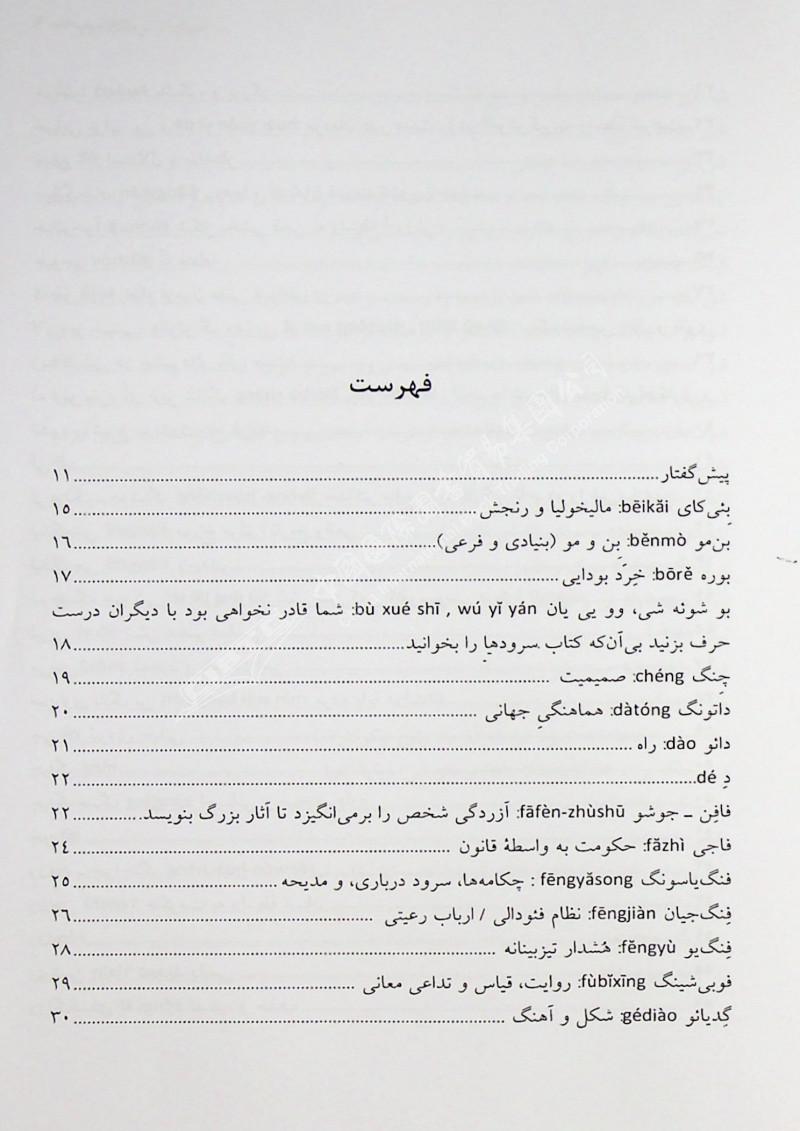 فهرست
پیش‌گفتار ... ۱۱
بِئی‌کای bēikāi: مالیخولیا و رنجش ... ۱۵
بن‌مو běnmò: بن و مو (بنیادی و فرعی) ... ۱۶
بوره bōrě: خِرَدِ بودایی ... ۱۷
بو شوئه شی، وو یی یان bù xué shī , wú yǐ yán: شما قادر نخواهی بود با دیگران درست
حرف بزنید بی‌آن‌که کتاب سرودها را بخوانید ... ۱۸
چِنگ chéng: صمیمیت ... ۱۹
داتونگ dàtóng: هماهنگیِ جهانی ... ۲۰
دائو dào: راه ... ۲۱
دِ dé ... ۲۲
فافِن ـ جوشو fāfèn-zhùshū: آزردگی شخص را برمی‌انگیزد تا آثار بزرگ بنویسد ... ۲۲
فاجی fǎzhì: حکومت به واسطهٔ قانون ... ۲۴
فنگ‌یاسونگ fēngyǎsong : چکامه‌ها، سرود درباری، و مدیحه ... ۲۵
فِنگ‌جیان fēngjiàn: نظام فئودالی / ارباب رعیتی ... ۲۶
فِنگ‌یو fěngyù: هُشدار تیزبینانه ... ۲۸
فوبی‌شینگ fùbǐxīng: روایت، قیاس و تداعی معانی ... ۲۹
گِدیائو gédiào: شکل و آهنگ ... ۳۰